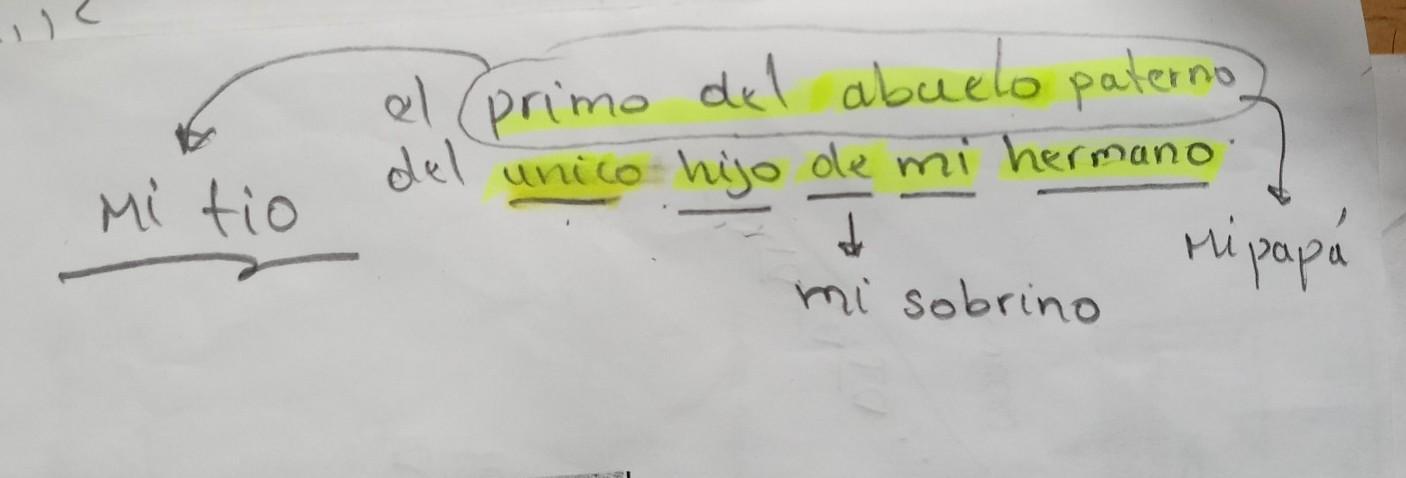 el primo del abuelo paterno
del unico hijo de mi hermano
Mi tio
Mi papá
mi sobrino